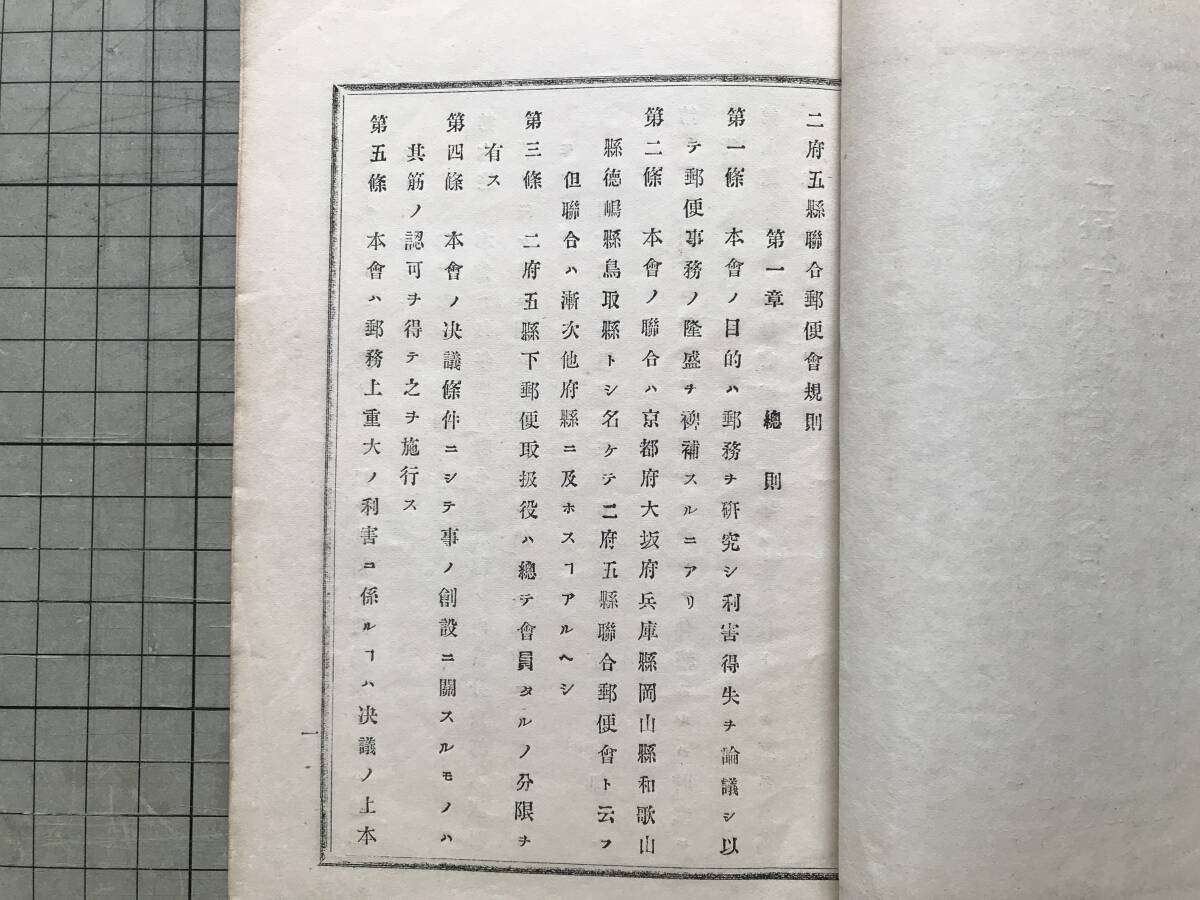 二府五縣聯合郵便會規則
第一章　總則
第一條　本會ノ目的ハ郵務ヲ硏究シ利害得失ヲ論議シ以
テ郵便事務ノ隆盛ヲ裨補スルニアリ
第二條　本會ノ聯合ハ京都府大坂府兵庫縣岡山縣和歌山
縣德嶋縣鳥取縣トシ名ケテ二府五縣聯合郵便會ト云フ
但聯合ハ漸次他府縣ニ及ホスヿアルヘシ
第三條　二府五縣下郵便取扱役ハ總テ會員タルノ分限ヲ
有ス
第四條　本會ノ决議條件ニシテ事ノ創設ニ關スルモノハ
其筋ノ認可ヲ得テ之ヲ施行ス
第五條　本會ハ郵務上重大ノ利害ニ係ルヿハ决議ノ上本
一